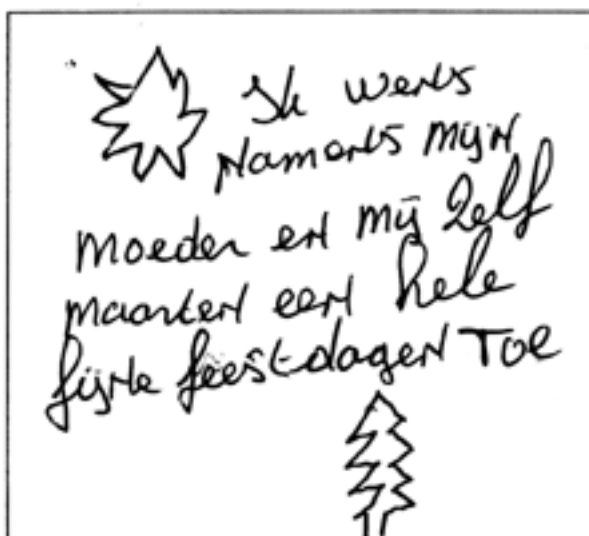 Ik wens
Namens mijn
moeder en mij Zelf
maarten een hele
fijne feestdagen Toe